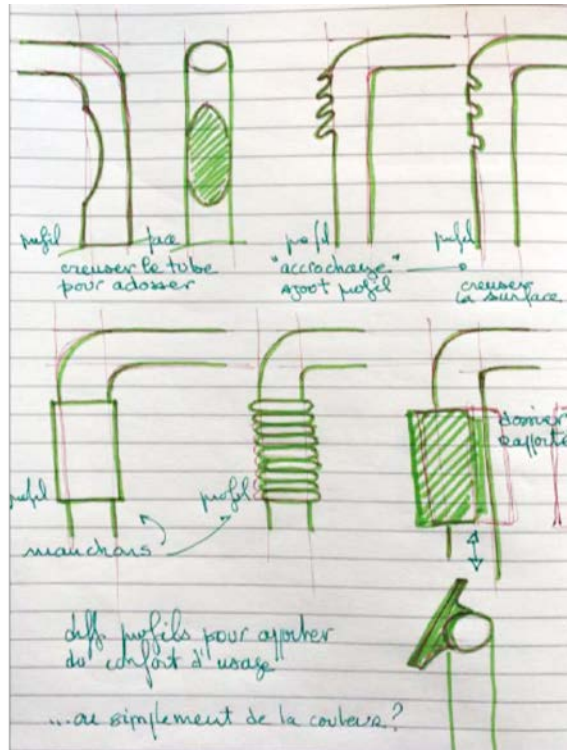 profil
face
creuser le tube
pour adosser
profil
"accrochage"
ajout profil
profil
creuser
la surface
profil
manchons
profil
dossier
rapporté
diff. profils pour apporter
du confort d'usage
...ou simplement de la couleur?